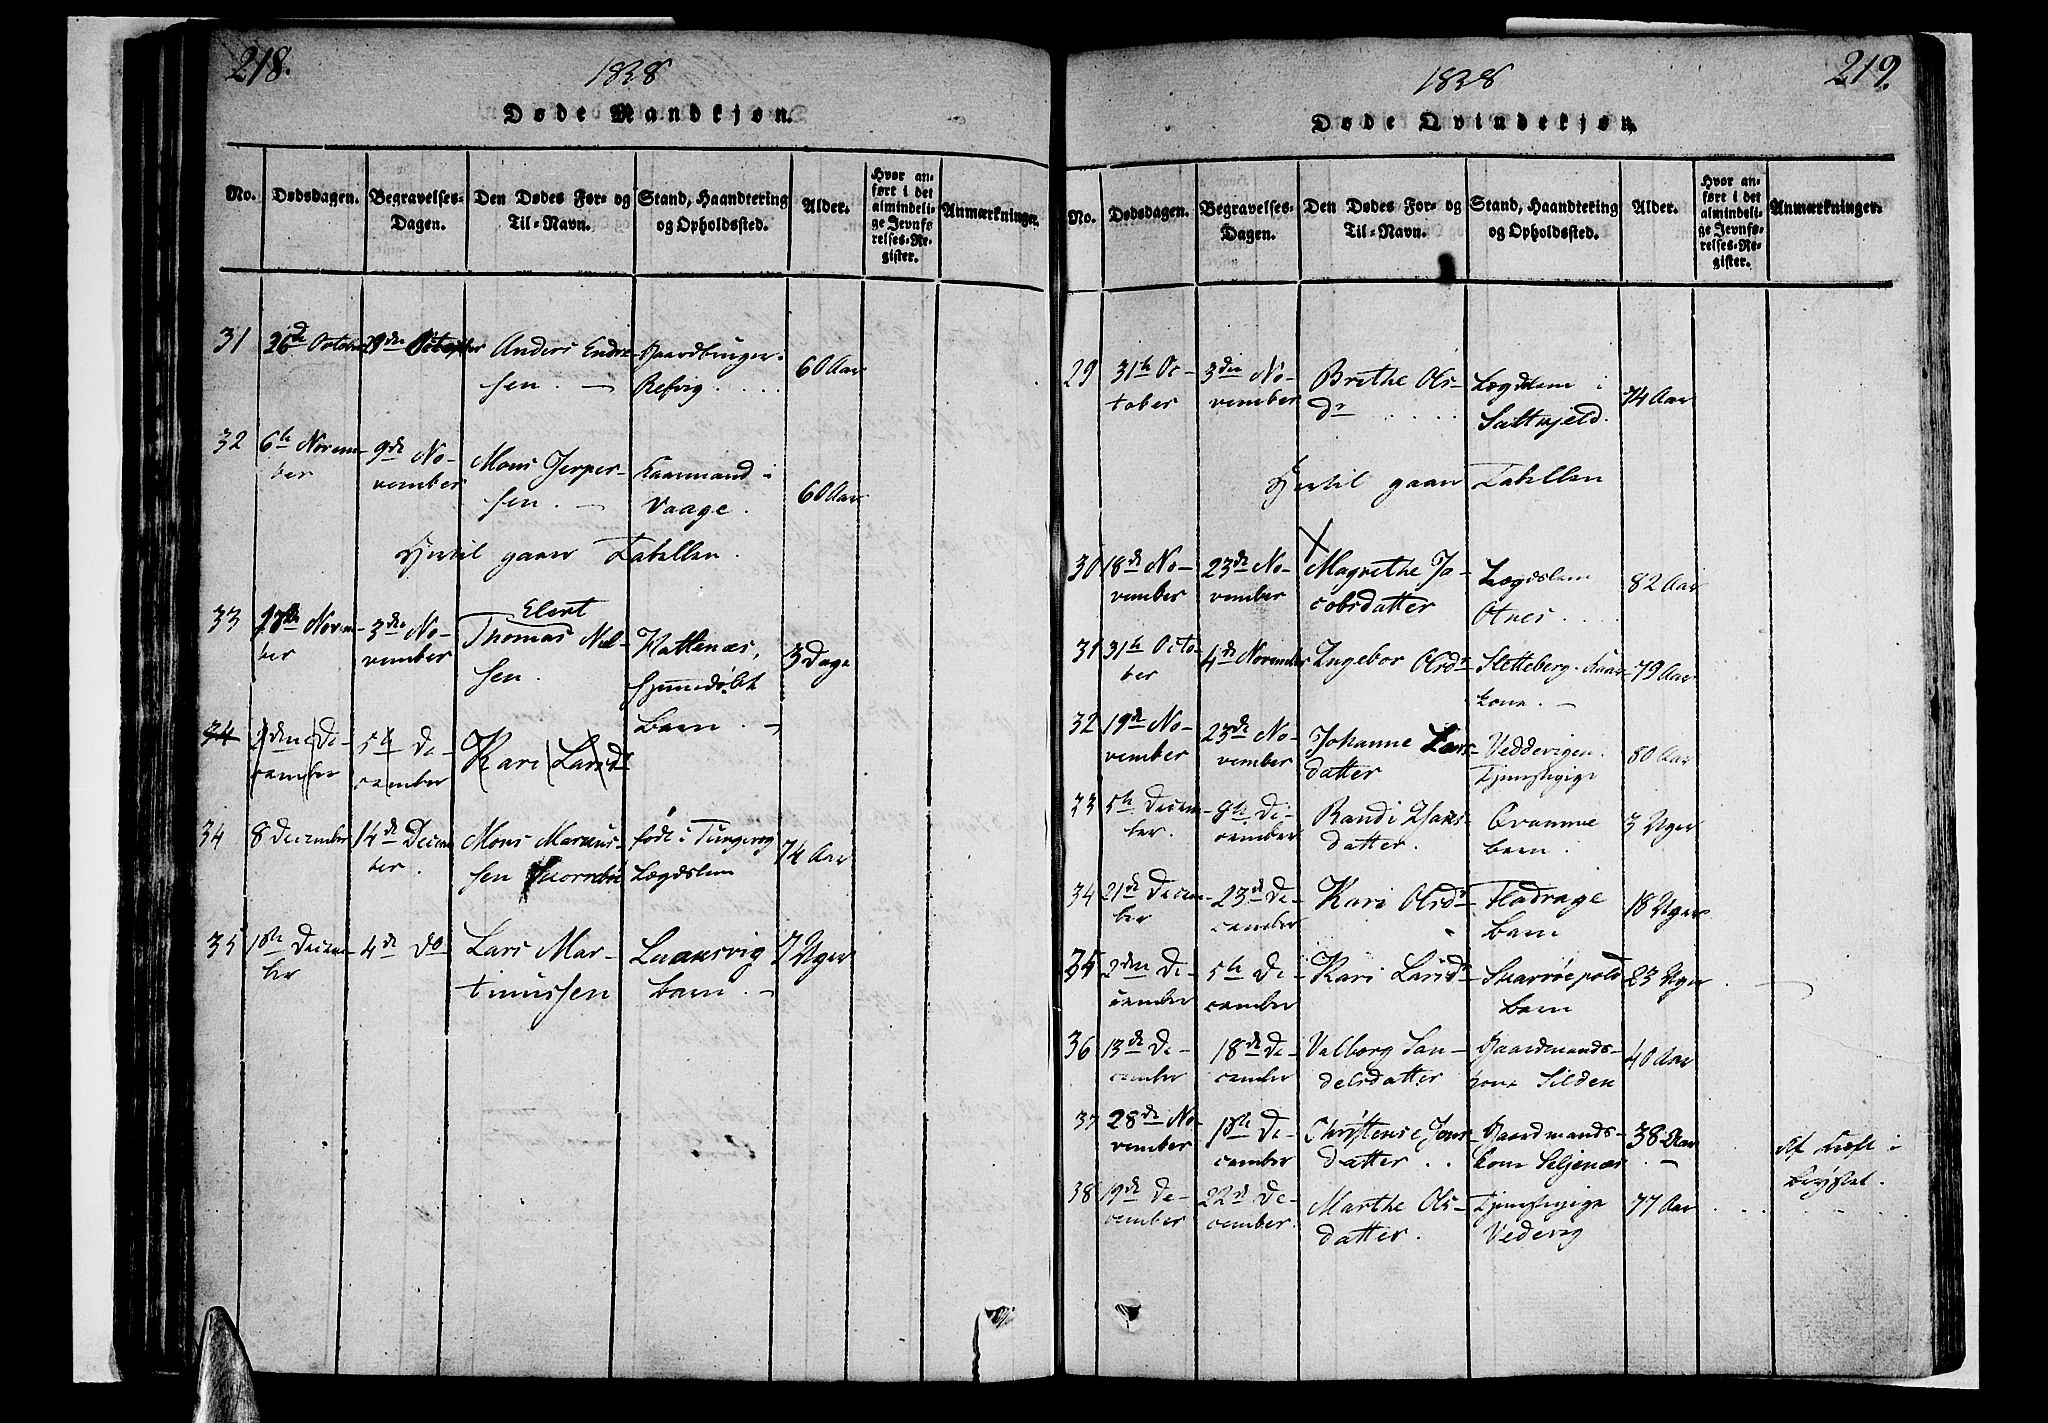 218.
1838
Døde Mandkjøn.
No.
Dødsdagen.
Begravelses-
Dagen.
Den Dødes For- og
Til-Navn.
Stand, Haandtering
og Opholdssted.
Alder.
Hvor an-
ført i det
almindeli-
ge Jevnfø-
relses-Re-
gister.
Anmærkninger.
31
26de October
October
Anders Endre-
sen. —
Gaardbruger.
Refvig. . . .
60 Aar
32
6te Novem-
ber
9de No-
vember
Mons Jesper-
sen. —
Kaarmand i
Vaage.
60 Aar
Hertil gaaer Tabellen.
33
Novem-
ber
3die No-
vember
Elert
Thomas Nil-
sen.
Hattenæs,
hjemdøbt
barn. —
3 Dage
34
2den De-
cember
5te De-
cember
Kari Larsdr
34
8 December
14de Decem-
ber.
Mons
sen
født i
Lægdslem
74 Aar
35
18te Decem-
ber
4de do
Lars Mar-
tinussen
barn. —
7 Uger
219.
1838
Døde Qvindekjøn.
No.
Dødsdagen.
Begravelses-
Dagen.
Den Dødes For- og
Til-Navn.
Stand, Haandtering
og Opholdssted.
Alder.
Hvor an-
ført i det
almindeli-
ge Jevnfø-
relses-Re-
gister.
Anmærkninger.
29
31te Oc-
tober
3die No-
vember
Brithe Ols-
dr . . . .
Lægdslem i
Saltkjeld.
74 Aar
Hertil gaaer Tabellen
30
18de No-
vember
23de No-
vember
Magrethe Ja-
cobsdatter
Lægdslem
Otnes . . .
82 Aar
31
31te Octo-
ber
4de November
Ingebor Olsdr
Sletteberg. Kaar-
kone. —
79 Aar
32
19de No-
vember
23de No-
vember
Johanne Lars-
datter
Veddevigen.
Tjenestepige
50 Aar
33
5te Decem-
ber.
8te De-
cember
Randi
datter.
Qvamme
barn.
3 Uger
34
21de Decem-
ber
23de De-
cember
Kari Olsdr
Fladrage
barn
18 Uger
35
2den De-
cember
5te De-
cember
Kari Larsdr
barn
23 Uger
36
13de De-
cember
18de De-
cember
Valborg San-
delsdatter
Gaardmands-
kone Silden
40 Aar
37
28de No-
vember
18te De-
cember
Christense Jons-
datter . .
Gaardmands-
kone Seljenæs
38 Aar
—
Af Kræft i
brystet.
38
19de De-
cember
22de De-
cember.
Marthe Ols-
datter.
Tjenestepige
Vedevig
77 Aar